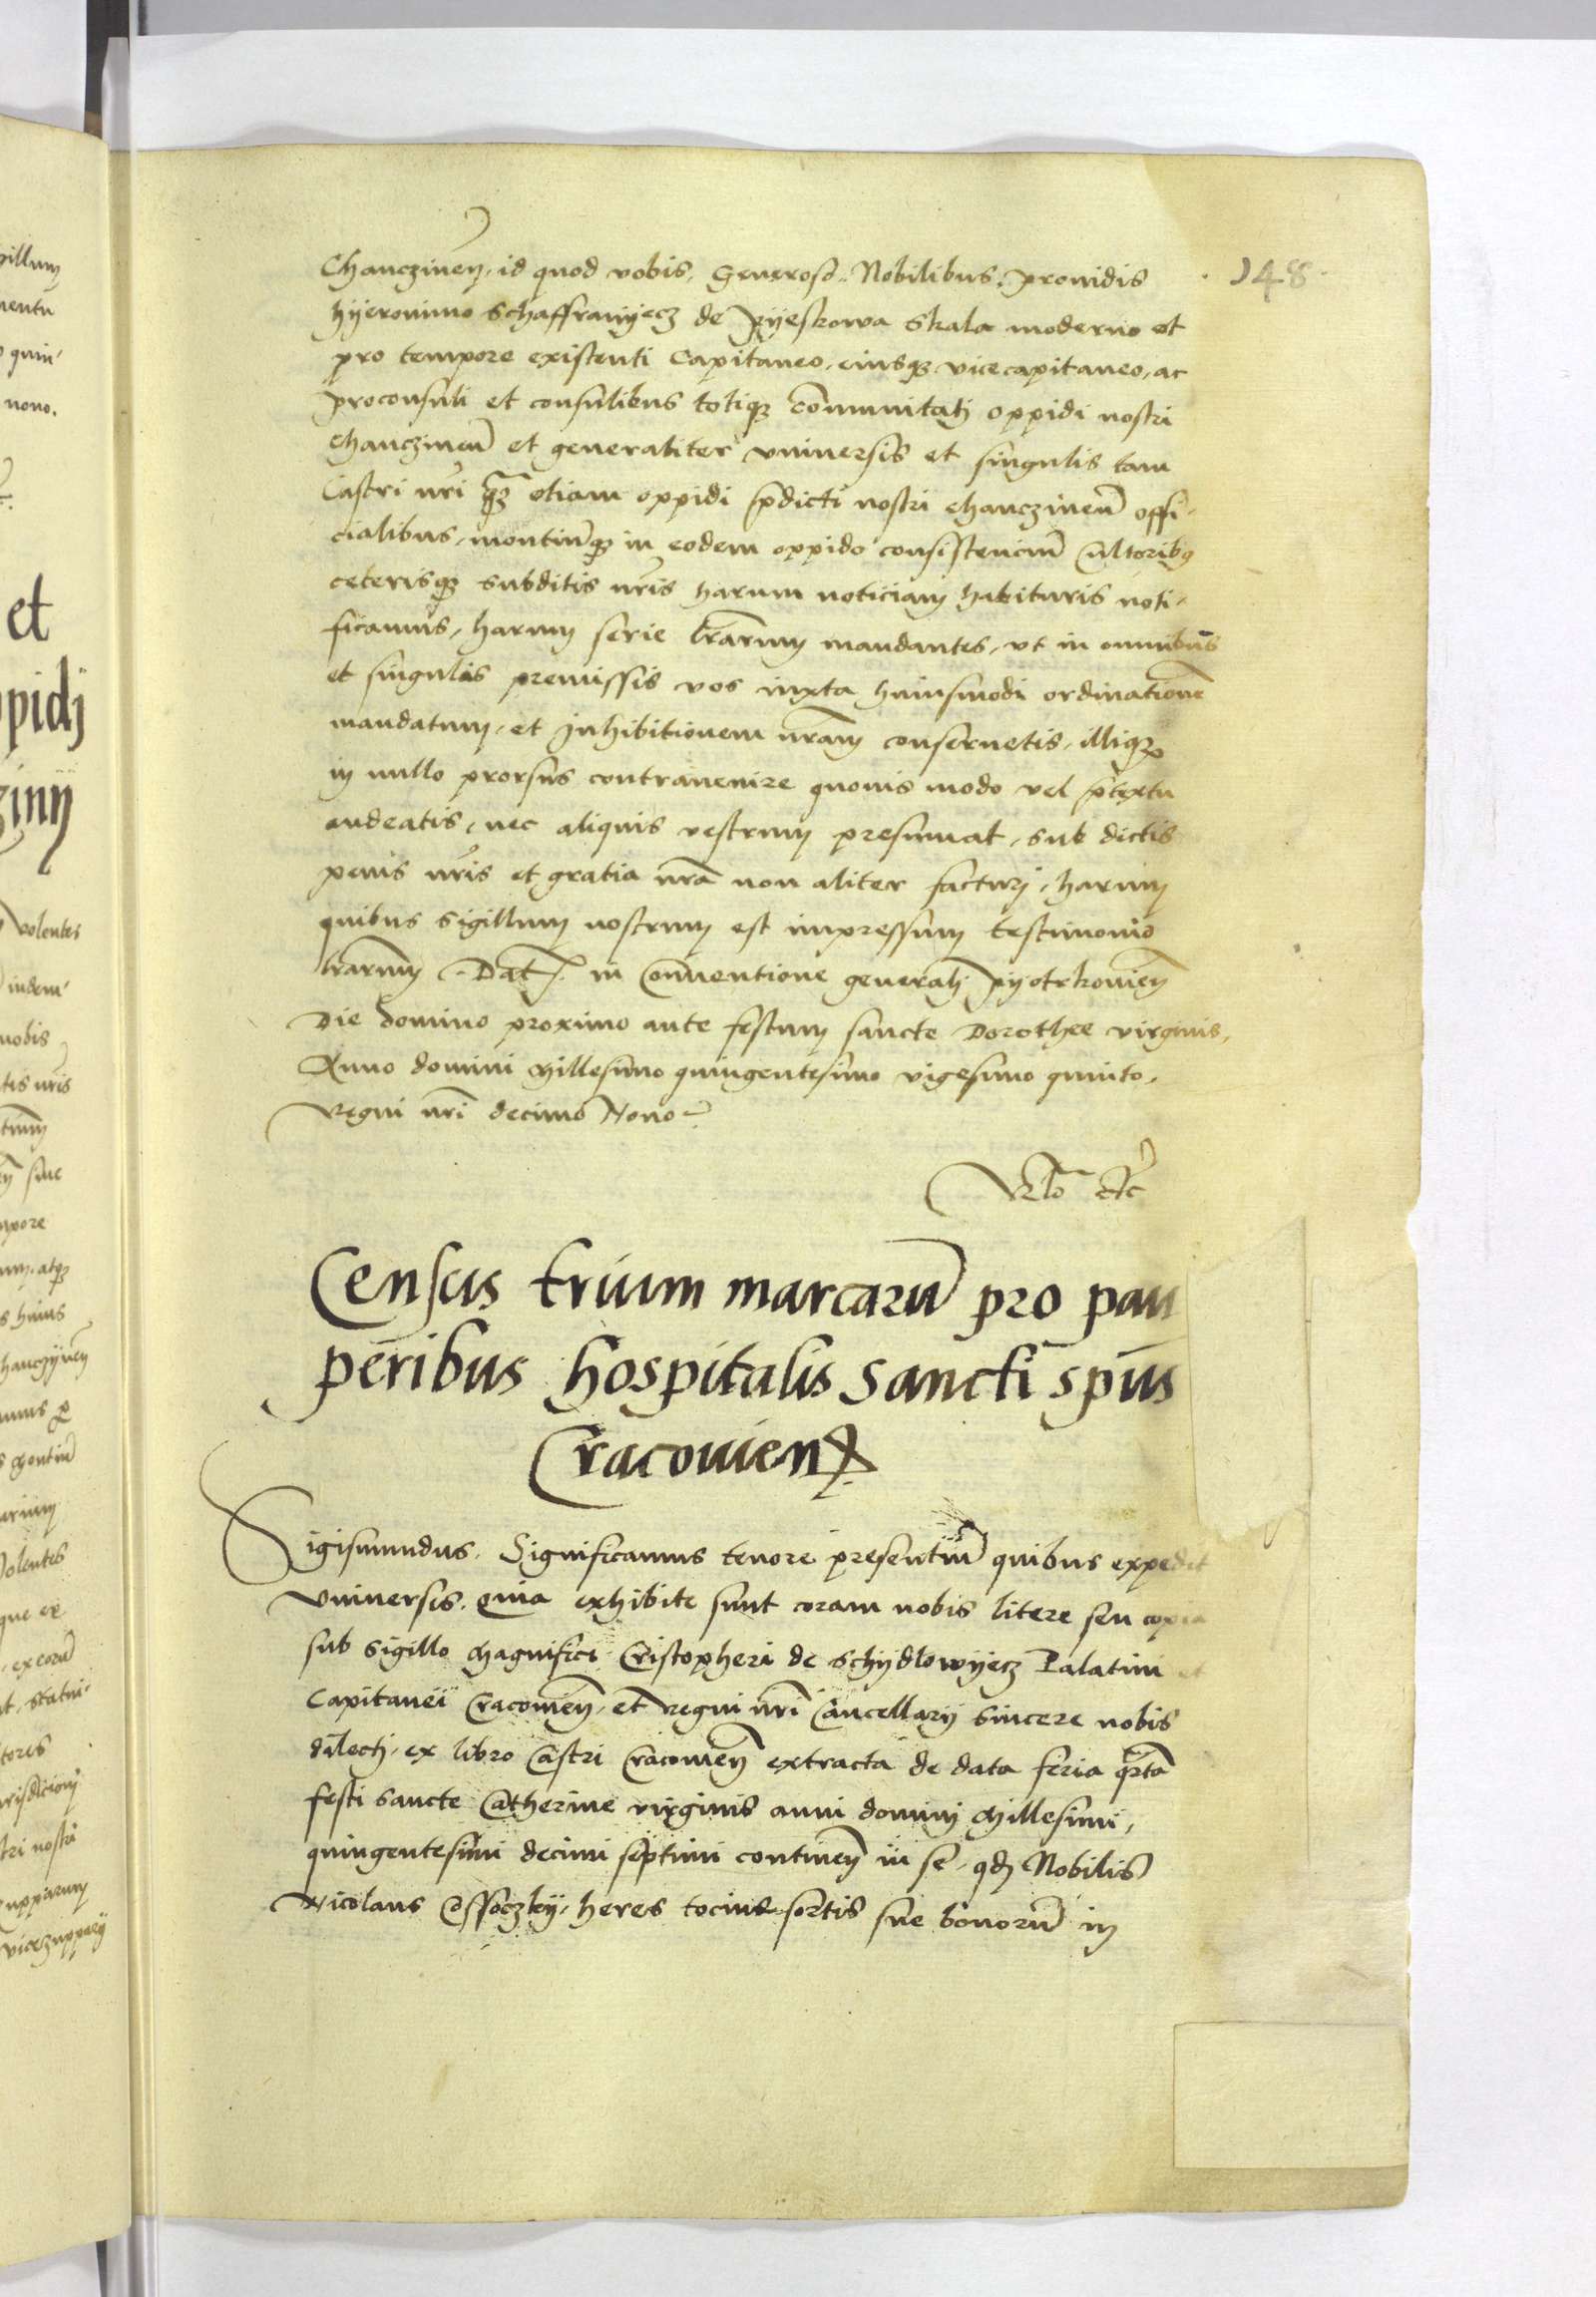 148
Chanczineñ, id quod vobis, Generoso, Nobilibus, Prouidis
hyeronimo Schaffranyecz de Pyeskowa Skala moderno et
pro tempore existenti Capitaneo, eiusqz vicecapitaneo, ac
proconsuli et consulibus totiqz cõmunitatj oppidi nostri
Chanczineñ et generaliter vniuersis et singulis tam
Castri nri etiam oppidi pdicti nostri Chanczineñ offi-
cialibus, montiuqz in eodem oppido consistenciu cultoribꝫ
ceterisqz subditis nris harum noticiam habituris noti-
ficamus, harum serie lrarum mandantes, vt in omnibus
et singulis premissis vos iuxta huiusmodi ordinatione
mandatum, et Inhibitionem nram conseruetis, illiqz
in nullo prorsus contrauenire quouis modo vel ptextu
audeatis, nec aliquis vestrum presumat, sub dictis
penis nris et gratia nra non aliter facturj, harum
quibus sigillum nostrum est impressum testimonio
lrarum. Dat. in Conuentione generalj Pyotrkouieñ
Die domino proximo ante festum sancte Dorothee virginis,
Anno domini Millesimo quingentesimo vigesimo quinto,
Regni nri decimo Nono.
Rlo etc
Census trium marcaru pro pau
peribus hospitalis Sancti spus
Cracouien
Sigismundus. Significamus tenore presentiu quibus expedit
vniuersis. Quia exhibite sunt coram nobis litere seu copia
sub sigillo Magnifici Cristopheri de Schydlowyecz Palatini et
Capitanei Cracouieñ, et Regni nri Cancellarij sincere nobis
dilectj, ex libro Castri Cracouieñ extracta de data feria qrta
festi sancte Catherine virginis anni dominj Millesimi,
quingentesimi decimi septimi continen in se, qd Nobilis
Nicolaus Ossoczky, heres tocius sortis sue bonoru in